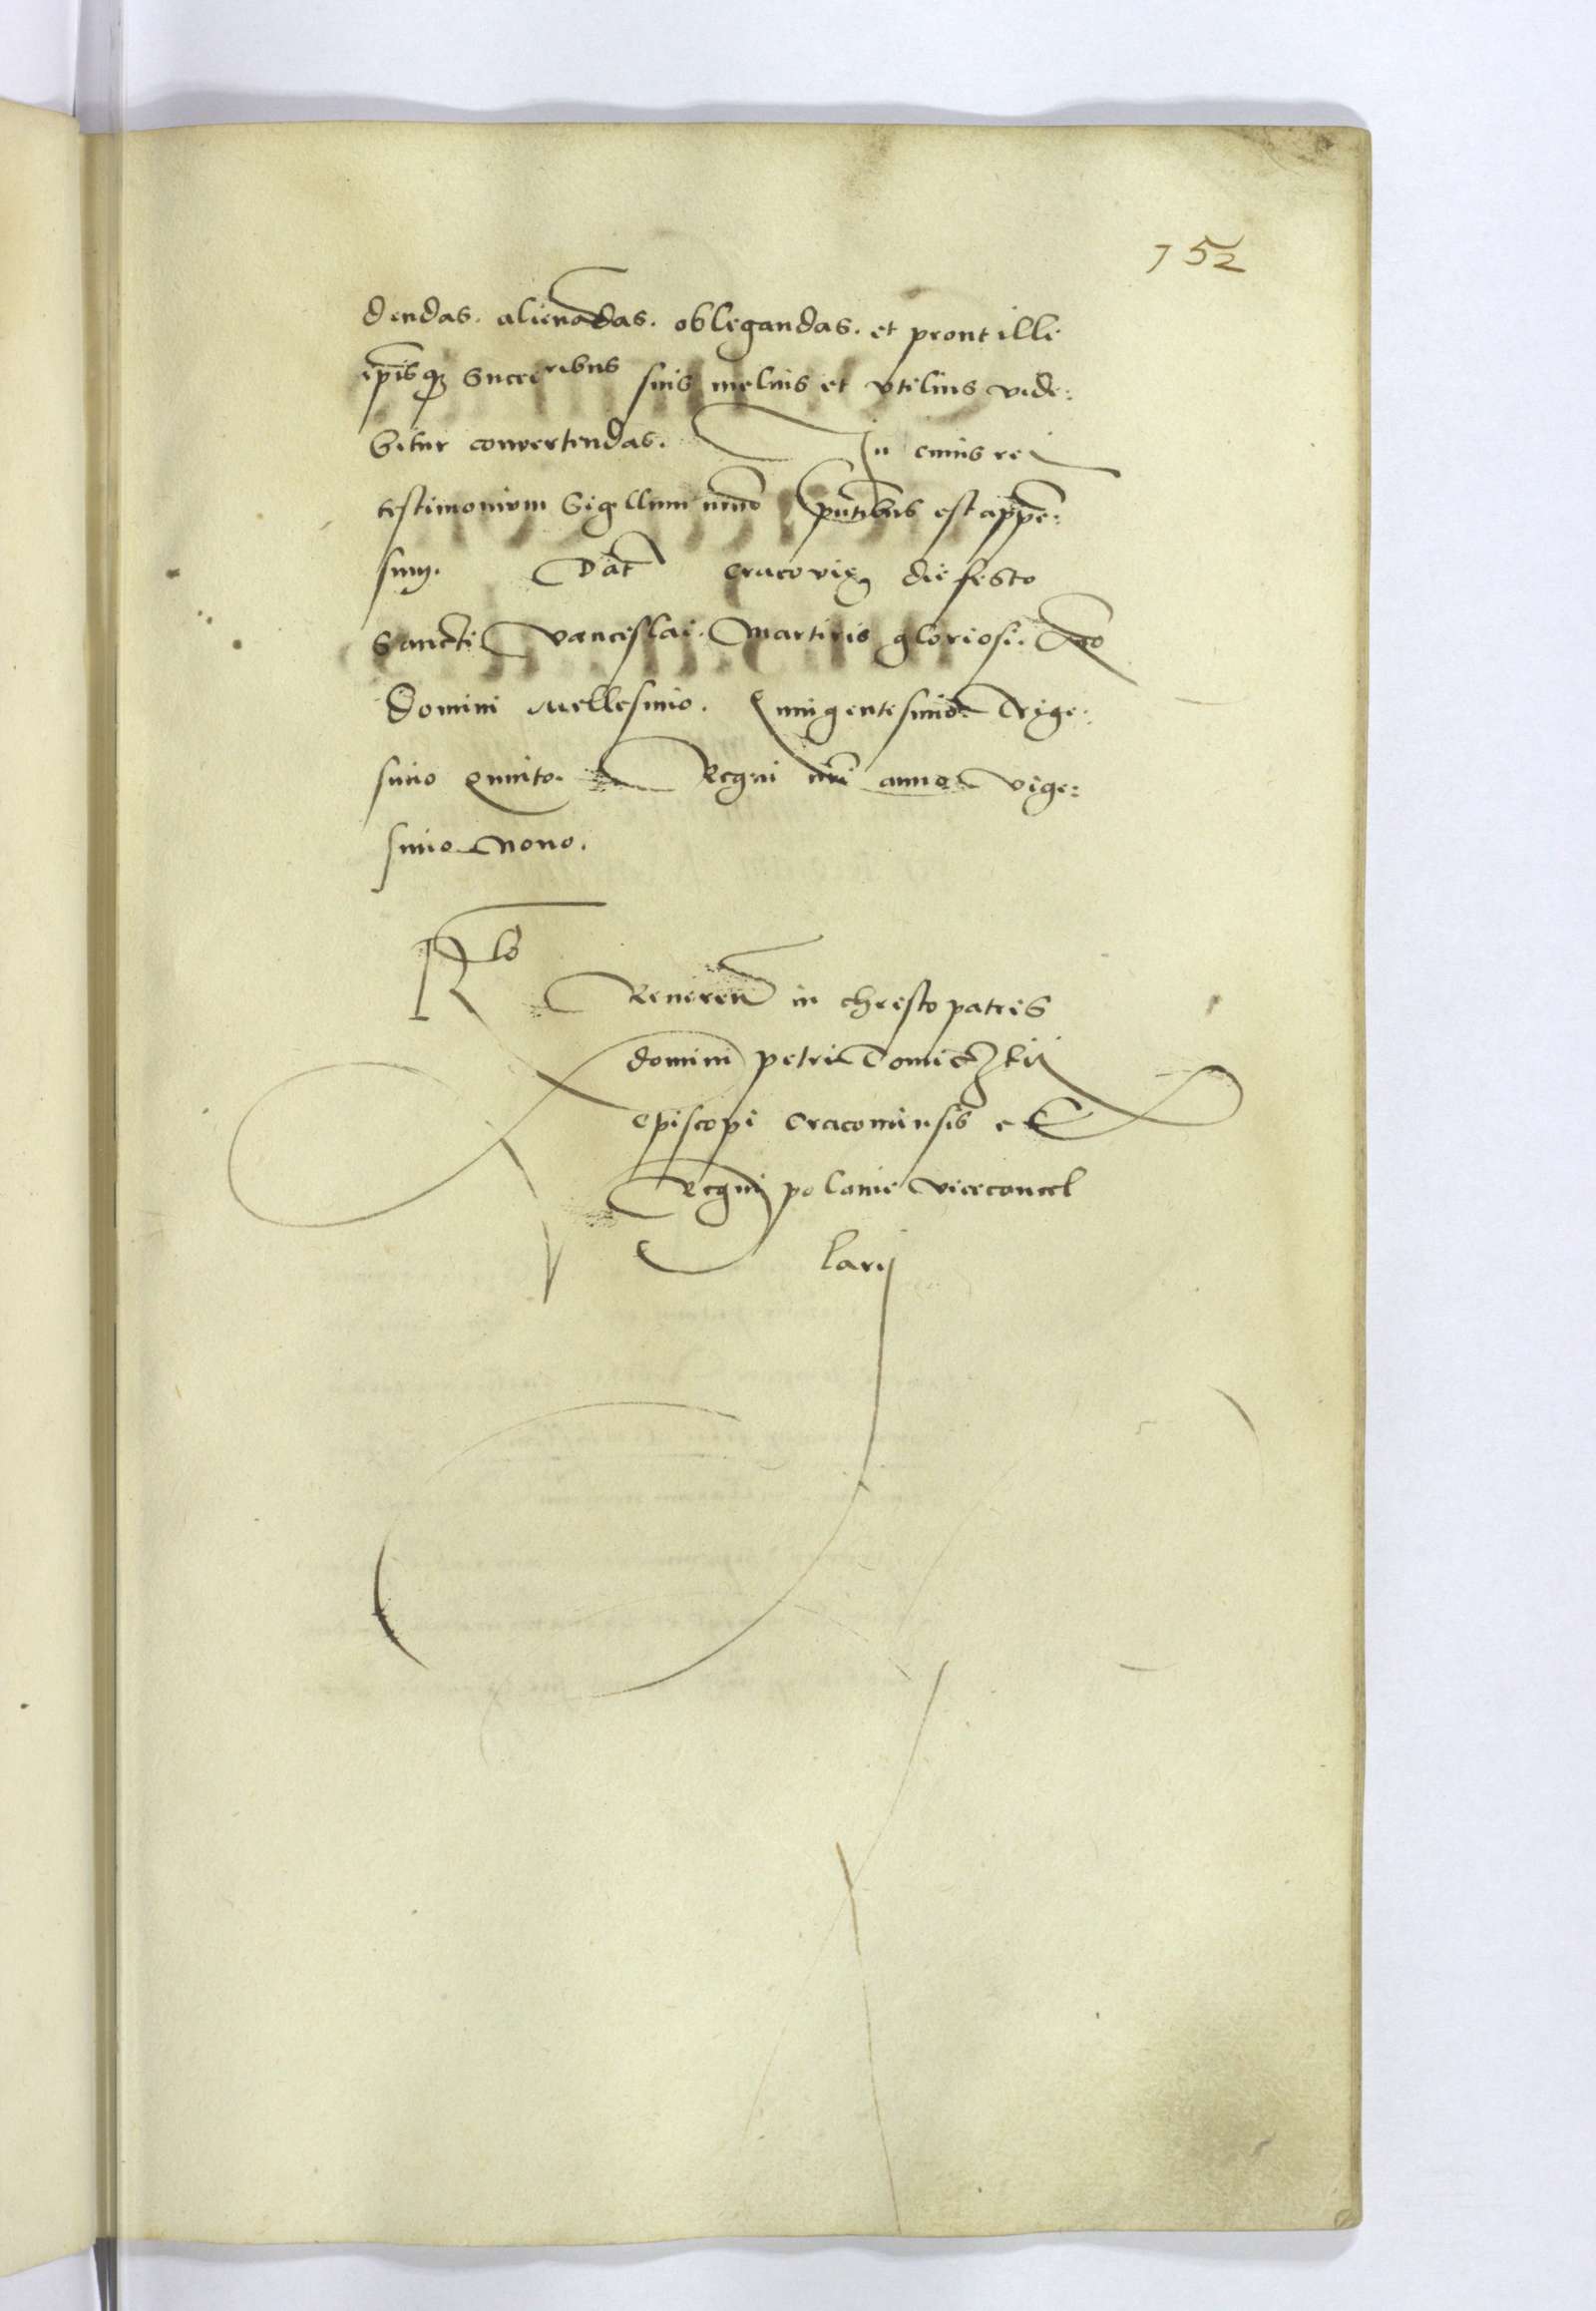 152
dendas. alienãdas. obligandas. et prout illi
ip̃isq; Succ̃ribus suis melius et vtilius vide:
bitur convertendas. In cuius rei
testimonium Sigillum nr̃um p̃ntibus est appẽ:
sum. Dat̃ Cracovię die festo
Sancti Vanceslai. Martiris gloriosi. Año
Domini Millesimo. Quingentesimo Trige:
simo Quinto. Regni nr̃i anno Vige:
simo Nono.
Rlo
Reveren̄ in christo patris
domini petri Tomiczkij
Episcopi Cracoviensis et
Regni polonie vicecancel
larij